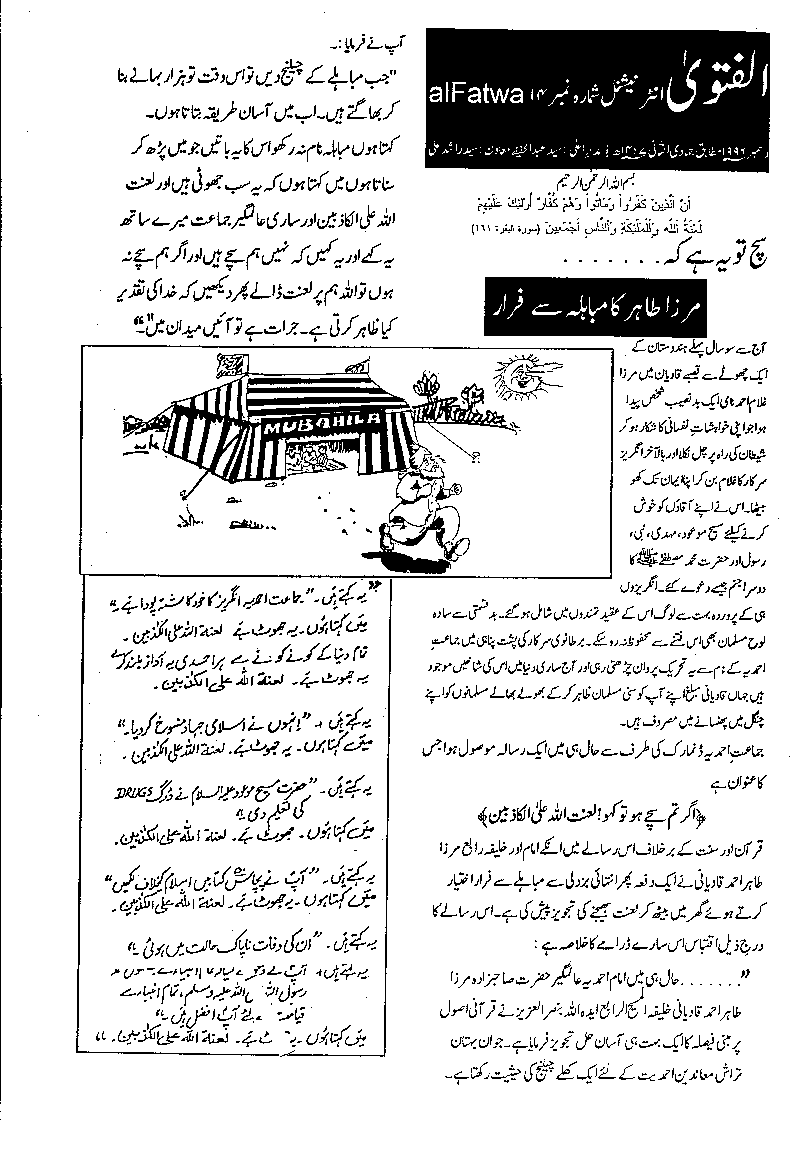 الفتویٰ انٹرنیشنل شمارہ نمبر ۱۴ alFatwa
دسمبر ۱۹۹۶ مطابق جمادی الثانی ۱۴۱۷ھ مدیر اعلیٰ: سید عبدالحفیظ معاون: سید راشد علی
بسم اللہ الرحمٰن الرحیم
اَنَّ الَّذِينَ كَفَرُوا وَمَاتُوا وَهُمْ كُفَّارٌ اُولٰئِكَ عَلَيْهِمْ
لَعْنَةُ اللّٰهِ وَالْمَلٰئِكَةِ وَالنَّاسِ اَجْمَعِينَ (سورۃ البقرہ: ۱۶۱)
سچ تو یہ ہے کہ . . . . . . .
مرزا طاہر کا مباہلہ سے فرار
آج سے سو سال پہلے ہندوستان کے
ایک چھوٹے سے قصبے قادیان میں مرزا
غلام احمد نامی ایک بد نصیب شخص پیدا
ہوا جو اپنی خواہشات نفسانی کا شکار ہو کر
شیطان کی راہ پر چل نکلا اور بالآخر انگریز
سرکار کا غلام بن کر اپنا ایمان تک کھو
بیٹھا۔ اس نے اپنے آقاؤں کو خوش
کرنے کیلئے مسیح موعود، مہدی، نبی،
رسول اور حضرت محمد مصطفےٰ ﷺ کا
دوسرا جنم جیسے دعوے کئے۔ انگریزوں
ہی کے پروردہ بہت سے لوگ اس کے عقیدتمندوں میں شامل ہوگئے۔ بد قسمتی سے سادہ
لوح مسلمان بھی اس فتنے سے محفوظ نہ رہ سکے۔ برطانوی سرکار کی پشت پناہی میں جماعت
احمدیہ کے نام سے یہ تحریک پروان چڑھتی رہی اور آج ساری دنیا میں اس کی شاخیں موجود
ہیں جہاں قادیانی مبلغ اپنے آپ کو سنی مسلمان ظاہر کر کے بھولے بھالے مسلمانوں کو اپنے
چنگل میں پھنسانے میں مصروف ہیں۔
جماعت احمدیہ ڈنمارک کی طرف سے حال ہی میں ایک رسالہ موصول ہوا جس
کا عنوان ہے
﴿اگر تم سچے ہو تو کہو! لعنت اللہ علیٰ الکاذبین﴾
قرآن اور سنت کے برخلاف اس رسالے میں انکے امام اور خلیفہ رابع مرزا
طاہر احمد قادیانی نے ایک دفعہ پھر انتہائی بزدلی سے مباہلے سے فرار اختیار
کرتے ہوئے گھر میں بیٹھ کر لعنت بھیجنے کی تجویز پیش کی ہے۔ اس رسالے کا
درج ذیل اقتباس اس سارے ڈرامے کا خلاصہ ہے :
"........ حال ہی میں امام احمدیہ عالمگیر حضرت صاحبزادہ مرزا
طاہر احمد قادیانی خلیفۃ المسیح الرابع ایدہ اللہ بنصر العزیز نے قرآنی اصول
پر مبنی فیصلہ کا ایک بہت ہی آسان حل تجویز فرمایا ہے۔ جو ان بہتان
تراش معاندین احمدیت کے لئے ایک کھلے چیلنج کی حیثیت رکھتا ہے۔
آپ نے فرمایا :۔
"جب مباہلے کے چیلنج دیں تو اس وقت تو ہزار بہانے بنا
کر بھاگتے ہیں۔ اب میں آسان طریقہ بتاتا ہوں۔
کہتا ہوں مباہلہ نام نہ رکھو اس کا یہ باتیں جو میں پڑھ کر
سناتا ہوں میں کہتا ہوں کہ یہ سب جھوٹی ہیں اور لعنت
اللہ علی الکاذبین اور ساری عالمگیر جماعت میرے ساتھ
یہ کہے اور یہ کہیں کہ نہیں ہم سچے ہیں اور اگر ہم سچے نہ
ہوں تو اللہ ہم پر لعنت ڈالے پھر دیکھیں کہ خدا کی تقدیر
کیا ظاہر کرتی ہے۔ جرات ہے تو آئیں میدان میں"۔
MUBAHILA
"یہ کہتے ہیں۔ "جماعت احمدیہ انگریز کا خود کاشتہ پودا ہے۔"
میں کہتا ہوں۔ یہ جھوٹ ہے۔ لعنة اللہ علی الکٰذبین۔
تمام دنیا کے کونے کونے سے ہر احمدی یہ آواز بلند کرے
یہ جھوٹ ہے۔ لعنة اللہ علی الکٰذبین۔
یہ کہتے ہیں۔ "انہوں نے اسلامی جہاد منسوخ کر دیا۔"
میں کہتا ہوں۔ یہ جھوٹ ہے۔ لعنة اللہ علی الکٰذبین۔
یہ کہتے ہیں۔ "حضرت مسیح موعود علیہ السلام نے ڈرگ DRUGS
کی تعلیم دی۔"
میں کہتا ہوں۔ جھوٹ ہے۔ لعنة اللہ علی الکٰذبین۔
یہ کہتے ہیں۔ "آپ نے پچاس کتابیں اسلام کیخلاف لکھیں"
میں کہتا ہوں۔ یہ جھوٹ ہے۔ لعنة اللہ علی الکٰذبین۔
یہ کہتے ہیں۔ "ان کی وفات ناپاک حالت میں ہوئی۔"
یہ کہتے ہیں۔ آپ نے
رسول اللہ صلی اللہ علیہ وسلم، تمام انبیاء سے
آپ افضل ہیں۔"
میں کہتا ہوں۔ یہ جھوٹ ہے۔ لعنة اللہ علی الکٰذبین۔"